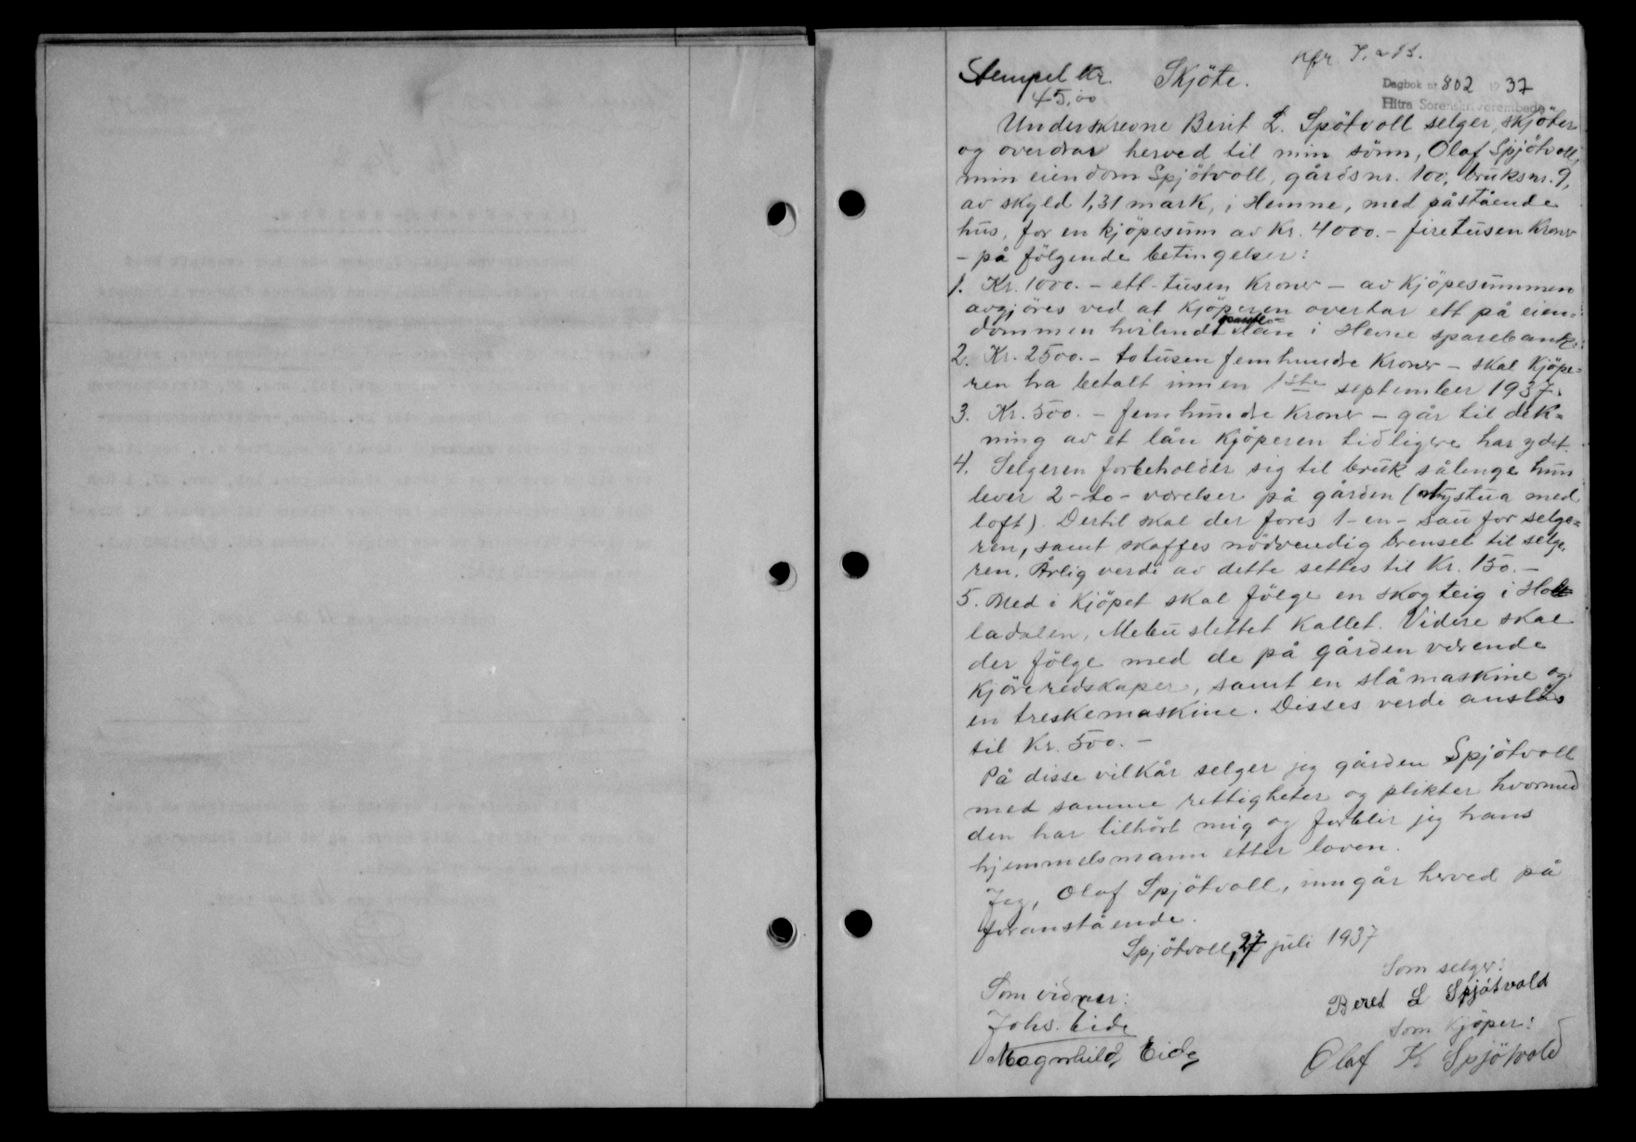 Stempel kr. Skjöte.
45,00
Dagbok nr 802 1937
Hitra Sorenskriverembede
Underskrevne Berit L. Spötvoll selger, skjöter
og overdrar herved til min sönn, Olaf Spjötvoll,
min eiendom Spjötvoll, gårdsnr. 100, bruksnr. 9,
av skyld 1,31 mark, i Hemne, med påstående
hus, for en kjöpesum av kr. 4000.- firetusen kroner
- på fölgende betingelser:
1. Kr. 1000.- ett-tusen kroner - av kjöpesummen
avgjöres ved at kjöperen overtar ett på eien=
dommen hvilende lån i Hevne sparebank.
2. Kr. 2500.- totusen femhundre kroner - skal kjöpe=
ren ha betalt innen 1ste september 1937.
3. Kr. 500.- femhundre kroner - går til dek=
ning av et lån kjöperen tidligere har ydet.
4. Selgeren forbeholder sig til bruk sålenge hun
lever 2-to- værelser på gården (nystua med
loft). Dertil skal der fores 1-en- sau for selge=
ren, samt skaffes nödvendig brensel til selge.
ren. Årlig verdi av dette settes til kr. 150.-
5. Med i kjöpet skal fölge en skogteig i Hol
ladalen, Mebuslettet kallet. Videre skal
der fölge med de på gården værende
kjöreredskaper, samt en slåmaskine og
en treskemaskine. Disses verdi anslåes
til kr. 500.-
På disse vilkår selger jeg gården Spjötvoll
med samme rettigheter og plikter hvormed
den har tilhört mig og forblir jeg hans
hjemmelsmann etter loven.
Jeg, Olaf Spjötvoll, inngår herved på
foranstående.
Spjötvoll, 27 juli 1937
Som selger:
Beret L Spjötvold
Som vidner:
Johs. Eide
Som kjöper:
Magnhild Eide
Olaf K Spjötvold